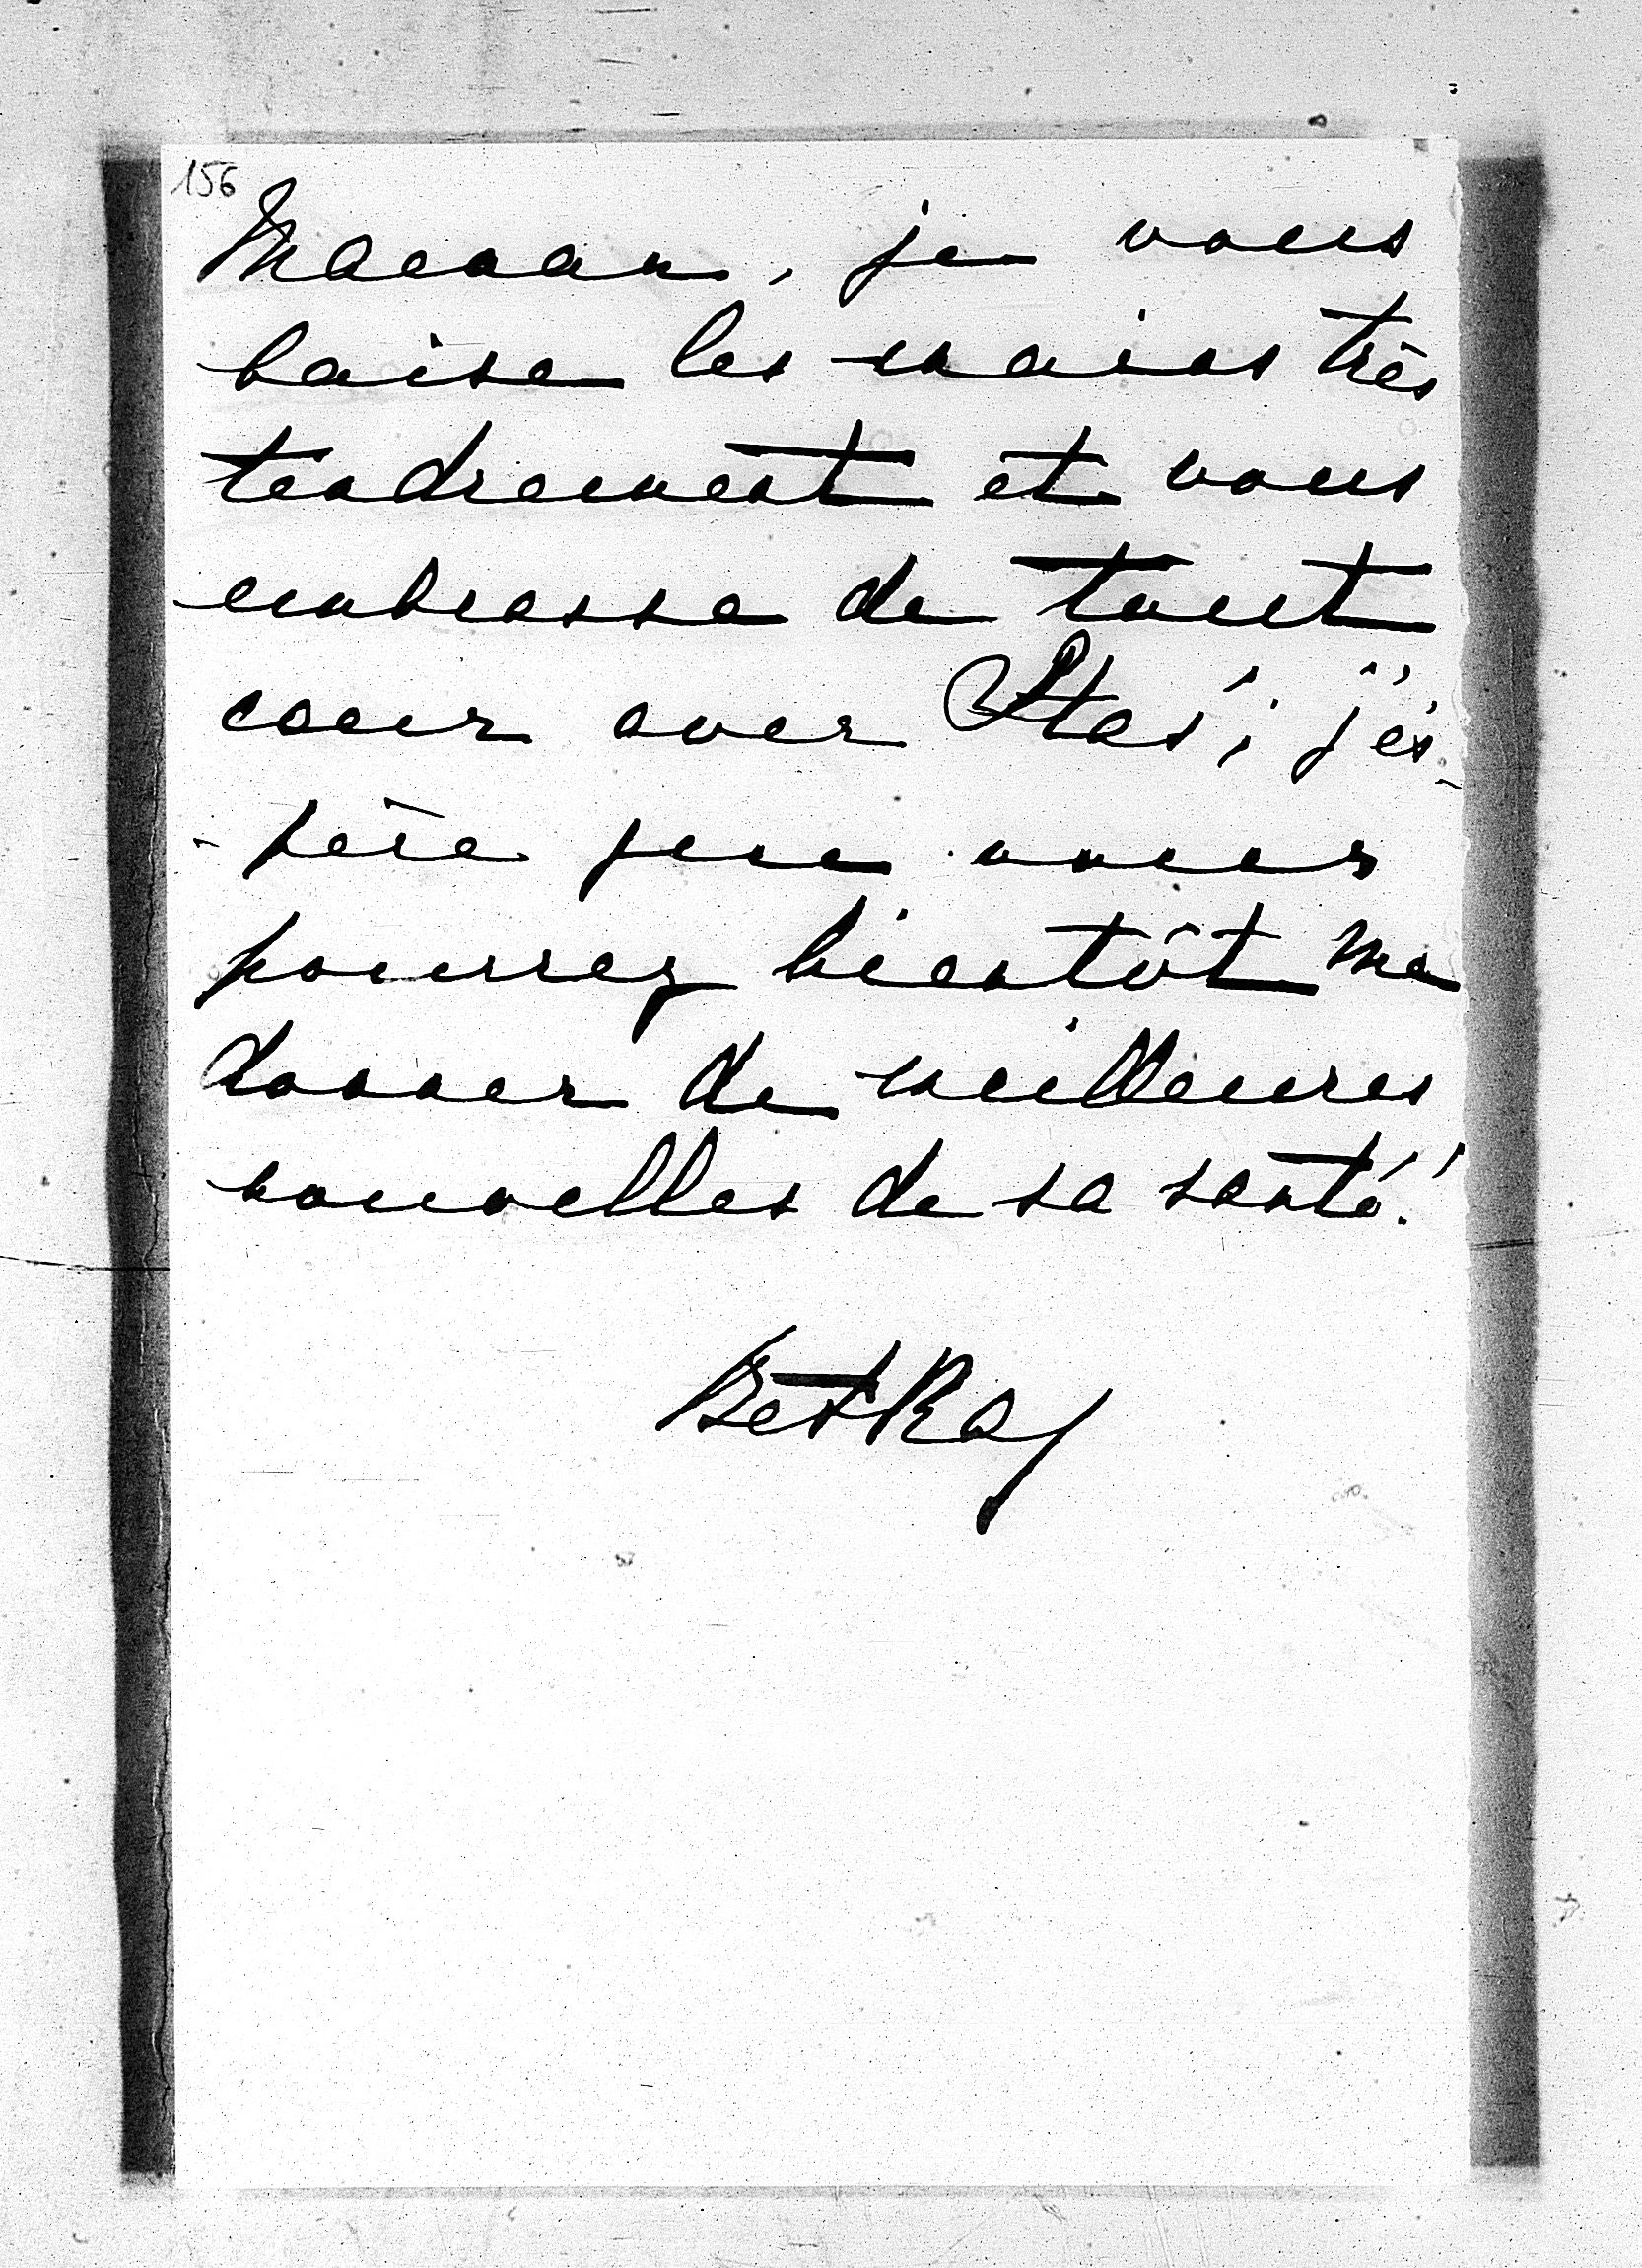 156
Maman, je vous
baise les mains très
tendrement et vous
embrasse de tout
coeur avec Staś; j'es-
-père que vous
pourrez bientôt me
donner de meilleures
nouvelles de sa santé!
BetKa